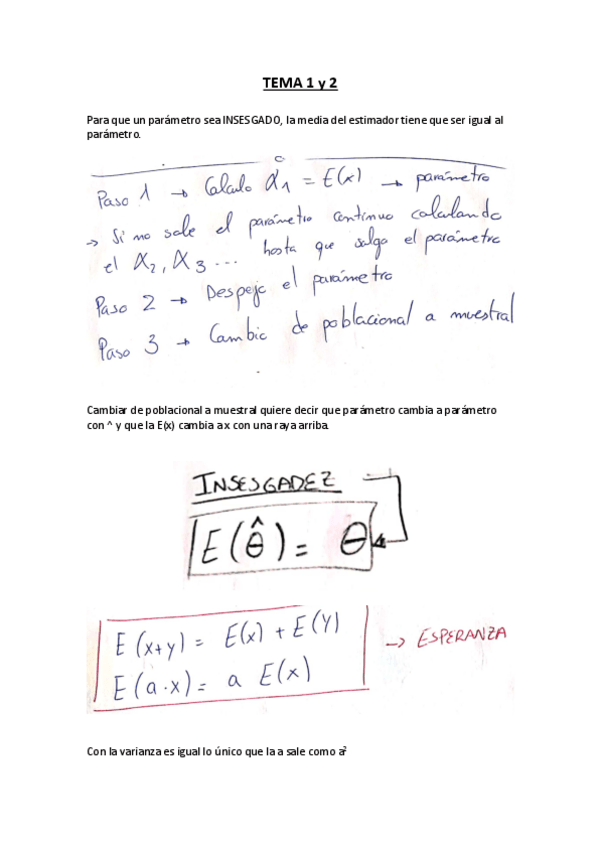 TEMA 1 y 2
Para que un parámetro sea INSESGADO, la media del estimador tiene que ser igual al
parámetro.
Paso 1 → Calculo α₁ = E(x) → parámetro
→ Si no sale el parámetro continuo calculando
el α₂, α₃ ... hasta que salga el parámetro
Paso 2 → Despejo el parámetro
Paso 3 → Cambio de poblacional a muestral
Cambiar de poblacional a muestral quiere decir que parámetro cambia a parámetro
con ^ y que la E(x) cambia a x con una raya arriba.
INSESGADEZ
E(θ̂) = θ
E(x+y) = E(x) + E(Y)
→ ESPERANZA
E(a·x) = a E(x)
Con la varianza es igual lo único que la a sale como a²